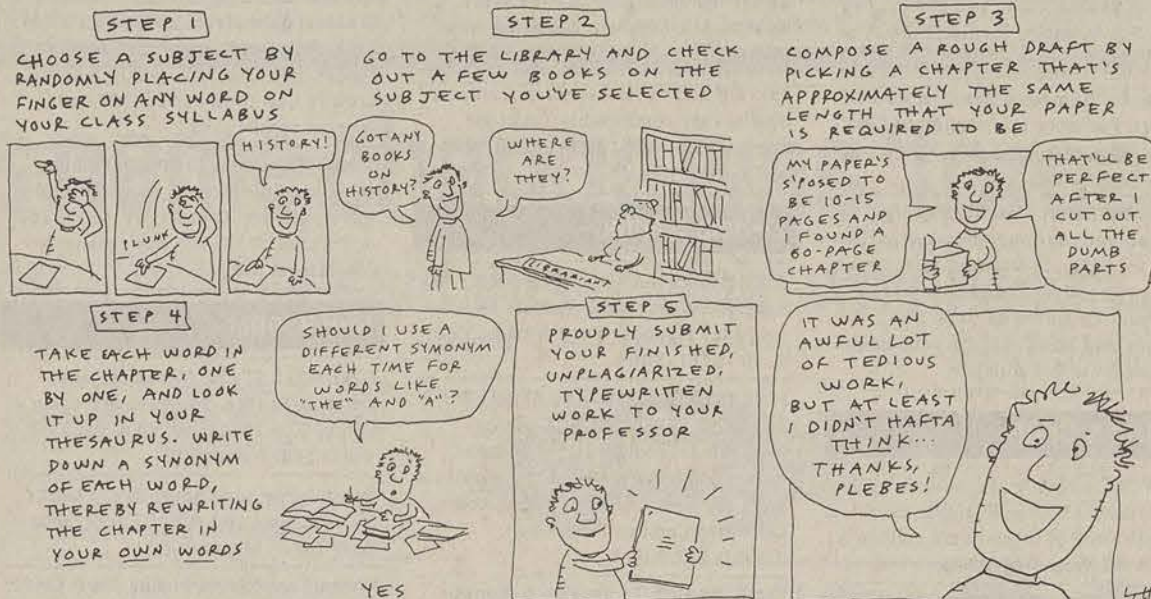 STEP 1
CHOOSE A SUBJECT BY
RANDOMLY PLACING YOUR
FINGER ON ANY WORD ON
YOUR CLASS SYLLABUS
PLUNK
HISTORY!
STEP 2
GO TO THE LIBRARY AND CHECK
OUT A FEW BOOKS ON THE
SUBJECT YOU'VE SELECTED
GOT ANY
BOOKS
ON
HISTORY?
WHERE
ARE
THEY?
LIBRARIAN
STEP 3
COMPOSE A ROUGH DRAFT BY
PICKING A CHAPTER THAT'S
APPROXIMATELY THE SAME
LENGTH THAT YOUR PAPER
IS REQUIRED TO BE
MY PAPER'S
S'POSED TO
BE 10-15
PAGES AND
I FOUND A
60-PAGE
CHAPTER
THAT'LL BE
PERFECT
AFTER I
CUT OUT
ALL THE
DUMB
PARTS
STEP 4
TAKE EACH WORD IN
THE CHAPTER, ONE
BY ONE, AND LOOK
IT UP IN YOUR
THESAURUS. WRITE
DOWN A SYNONYM
OF EACH WORD,
THEREBY REWRITING
THE CHAPTER IN
YOUR OWN WORDS
SHOULD I USE A
DIFFERENT SYMONYM
EACH TIME FOR
WORDS LIKE
"THE" AND "A"?
YES
STEP 5
PROUDLY SUBMIT
YOUR FINISHED,
UNPLAGIARIZED,
TYPEWRITTEN
WORK TO YOUR
PROFESSOR
IT WAS AN
AWFUL LOT
OF TEDIOUS
WORK,
BUT AT LEAST
I DIDN'T HAFTA
THINK...
THANKS,
PLEBES!